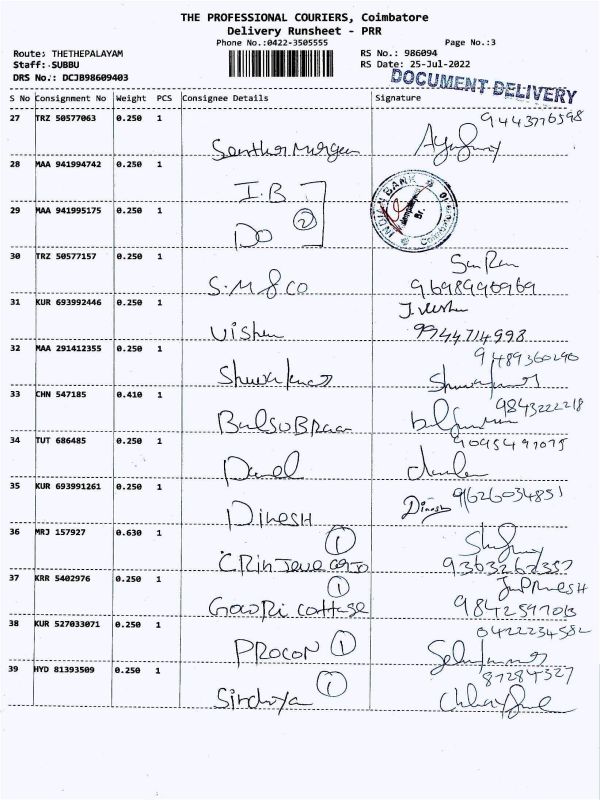 THE PROFESSIONAL COURIERS, Coimbatore
Delivery Runsheet - PRR
Phone No.:0422-3505555
Page No.:3
Route: THETHEPALAYAM
RS No.: 986094
Staff: SUBBU
RS Date: 25-Jul-2022
DRS No.: DCJB98609403
DOCUMENT DELIVERY
S No Consignment No Weight PCS Consignee Details Signature
27 TRZ 50577063 0.250 1
9443776598
28 MAA 941994742 0.250 1
I.B
INDIAN BANK
29 MAA 941995175 0.250 1
Do 2
30 TRZ 50577157 0.250 1
S.M & CO 9698996969
31 KUR 693992446 0.250 1
Vishnu 9944714998
32 MAA 291412355 0.250 1
9489360290
33 CHN 547185 0.410 1
9843222218
34 TUT 686485 0.250 1
35 KUR 693991261 0.250 1
Dinesh 9626034851
DINESH
36 MRJ 157927 0.630 1
1
37 KRR 5402976 0.250 1
1
Gowri cottage
38 KUR 527033071 0.250 1
0422234582
PROCON 1
39 HYD 81393509 0.250 1
87284327
1